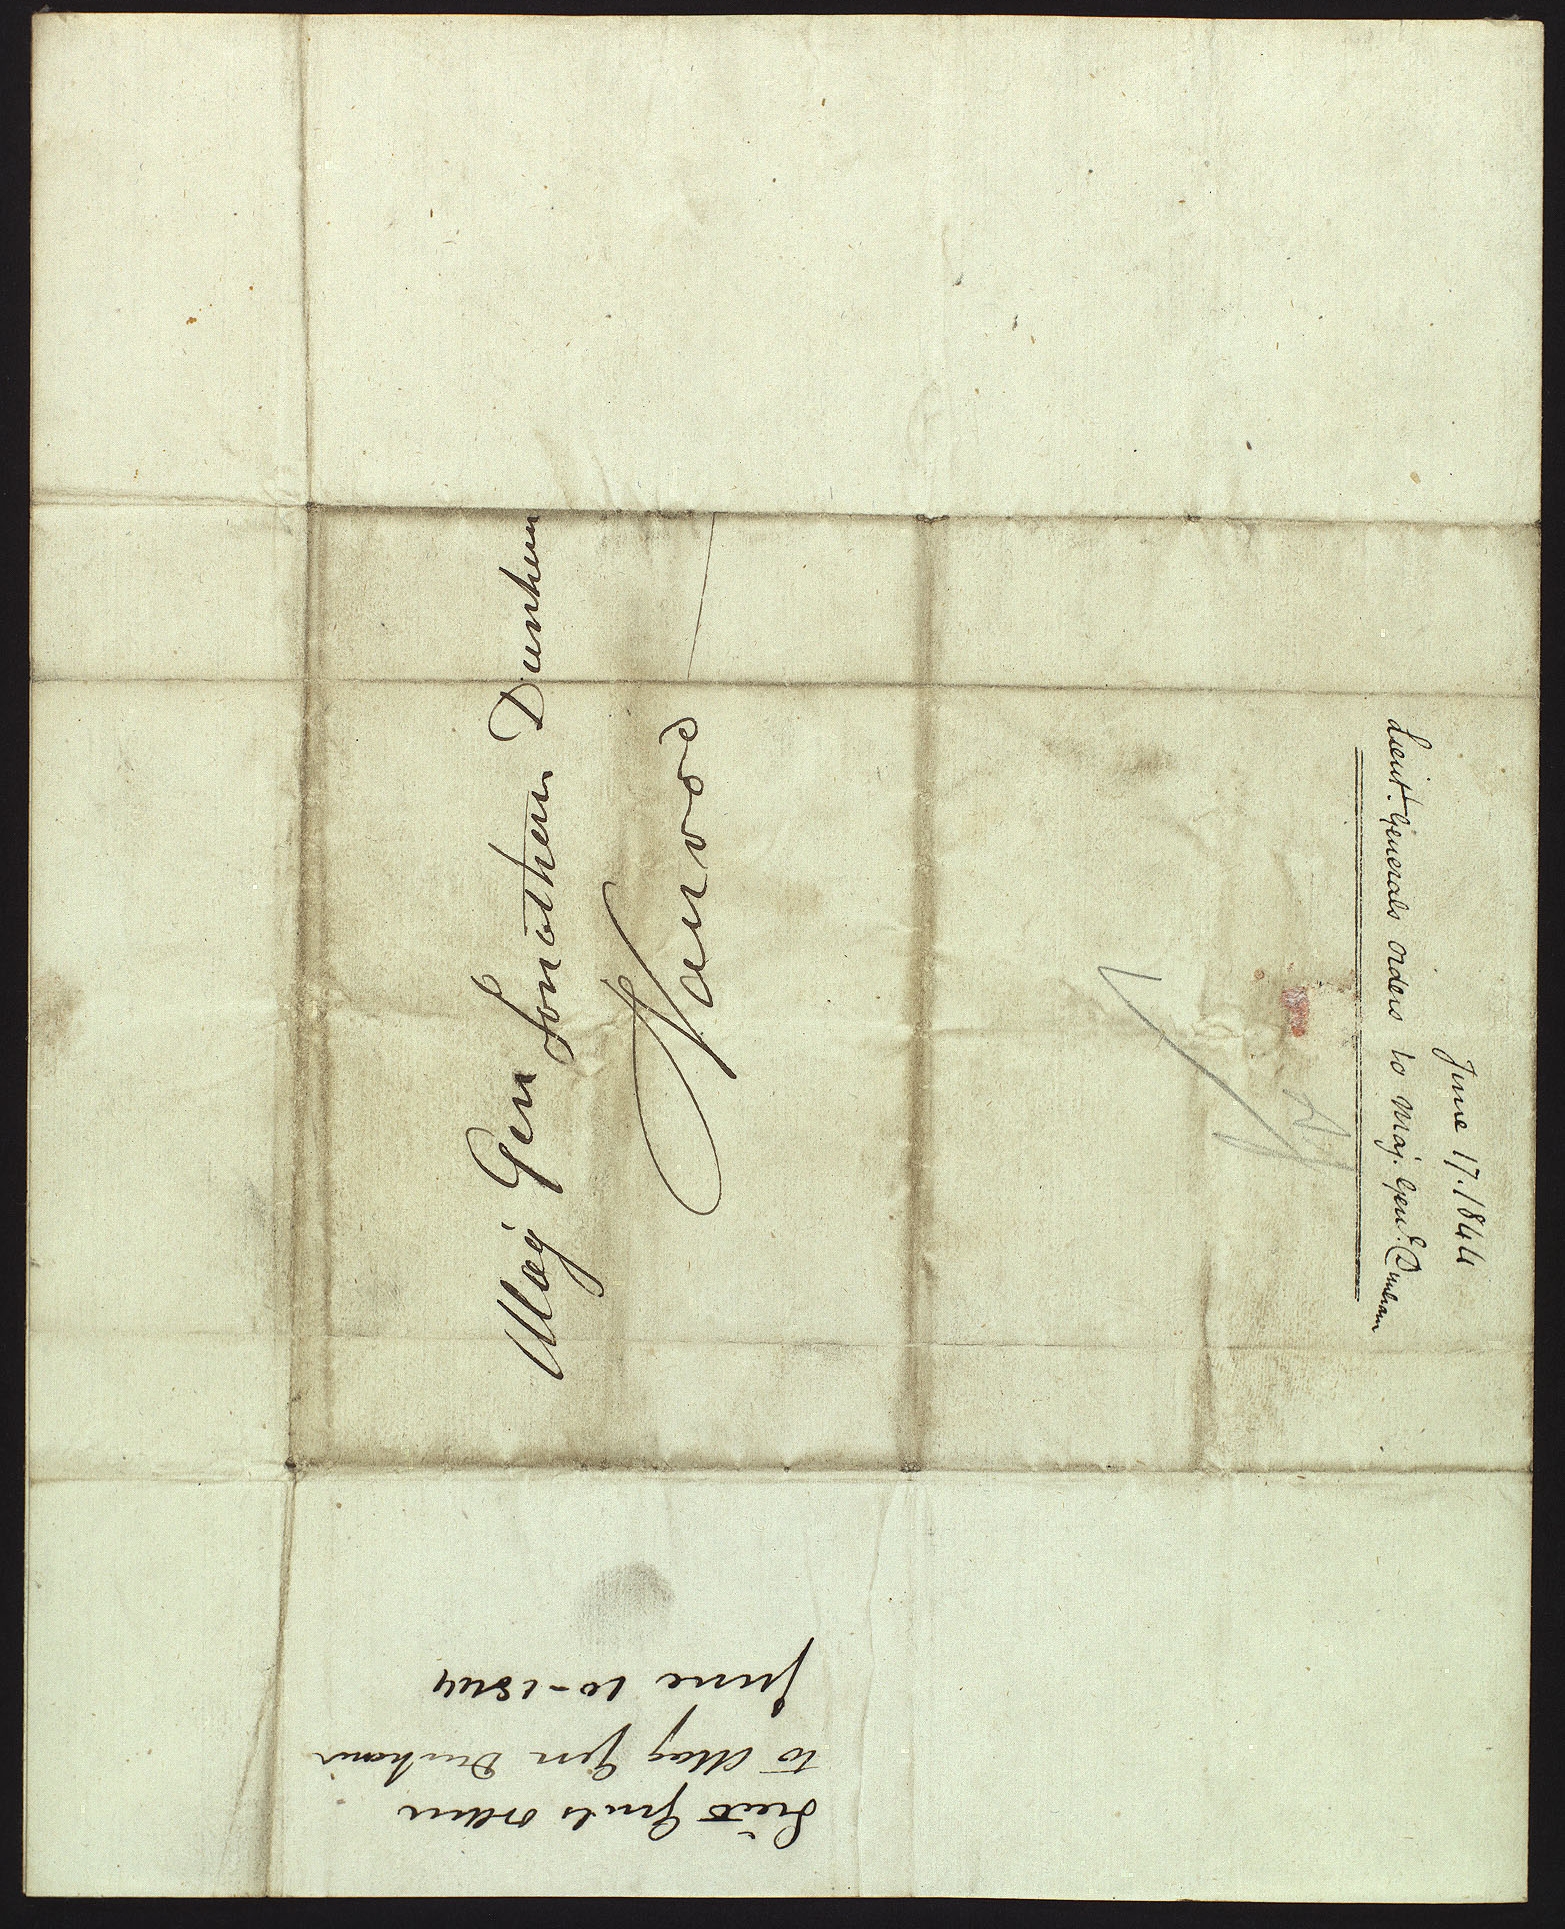 Maj Gen Jonathan Dunham
Nauvoo
June 17. 1844
Lieut. Generals orders to Maj. Genl. Dunham
Lieut Genls orders
to Maj Gen Dunham
June 10-1844